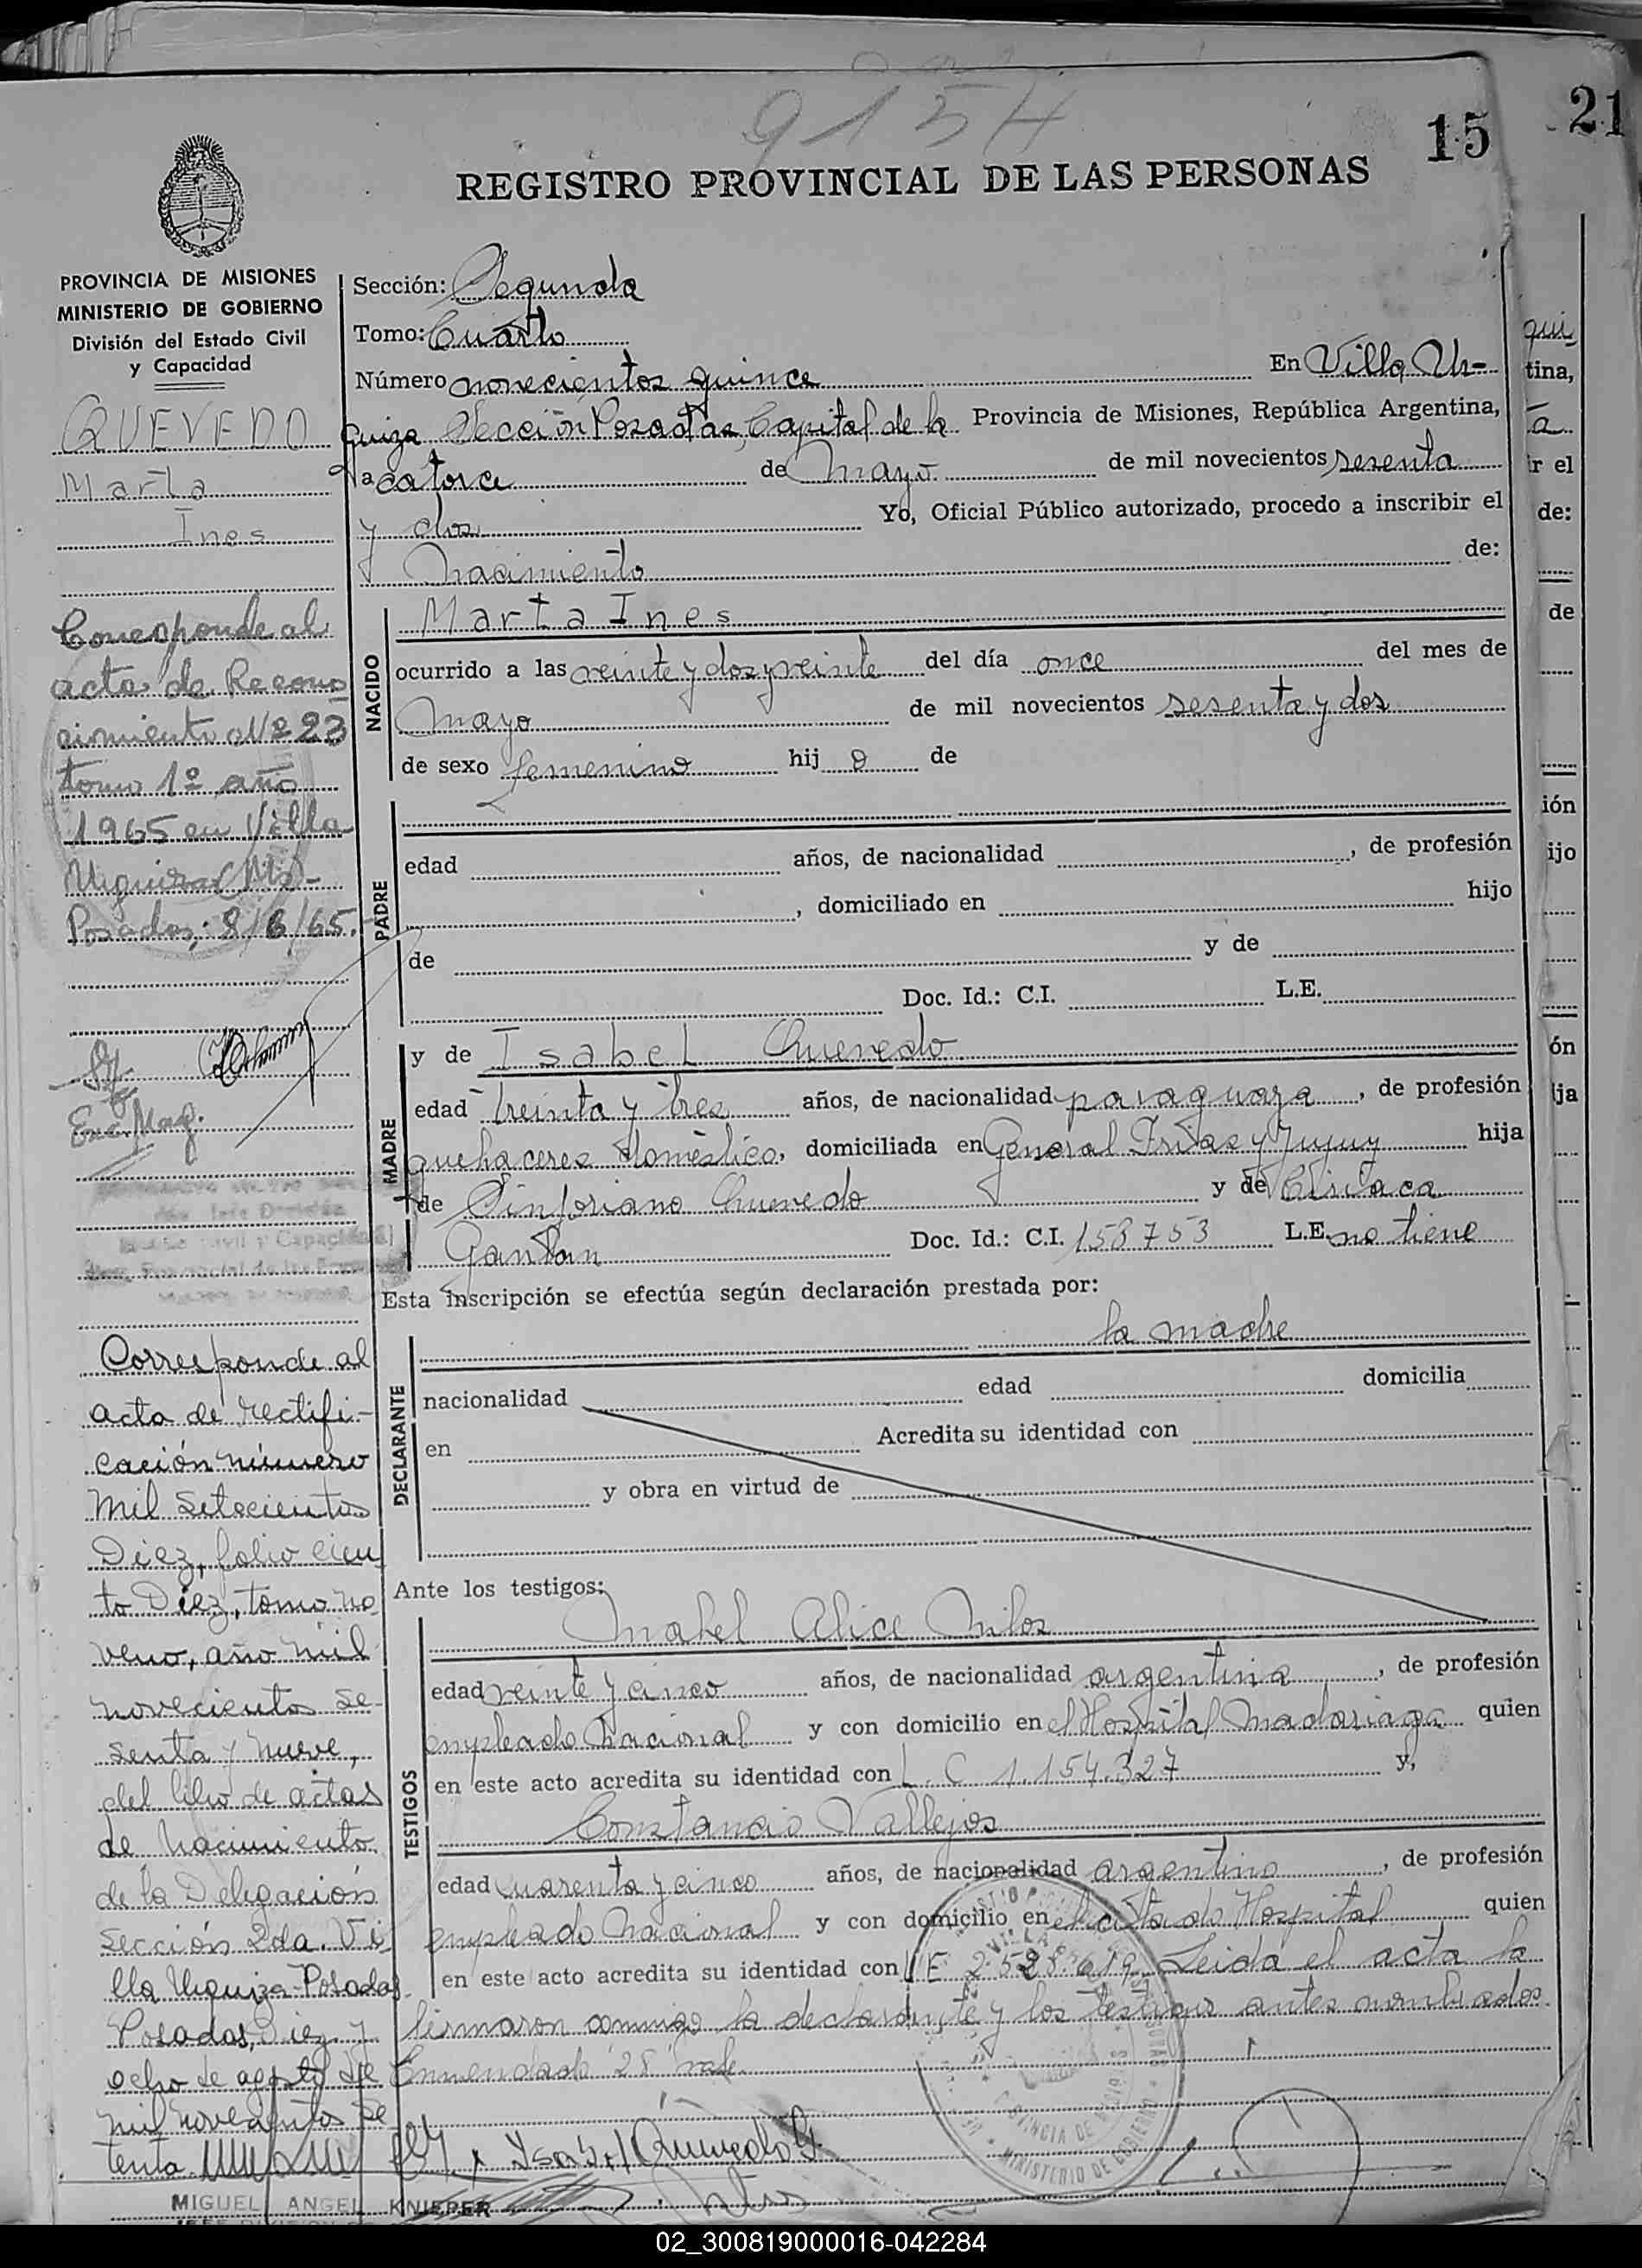 915H
15
21
REGISTRO PROVINCIAL DE LAS PERSONAS
PROVINCIA DE MISIONES
MINISTERIO DE GOBIERNO
División del Estado Civil
y Capacidad
QUEVEDO
Marta
Ines
Corresponde al
acta de Recono
cimiento Nº 23
tomo 1º año
1965 en Villa
Urquiza (Ms)-
Posadas, 8/6/65.
Enc. Maq.
Corresponde al
acta de rectifi-
cación número
mil setecientos
Diez, folio cien
to Diez, tomo no
veno, año mil
novecientos se
senta y nueve,
del libro de actas
de nacimiento
de la Delegación
Sección 2da. Vi
lla Urquiza-Posadas
Posadas, diez y
ocho de agosto de
mil novecientos se
tenta
MIGUEL ANGEL KNIEPER
Sección: Segunda
Tomo: Cuarto
Número novecientos quince En Villa Ur-
quiza Sección Posadas, Capital de la Provincia de Misiones, República Argentina,
a catorce de mayo de mil novecientos sesenta
y dos Yo, Oficial Público autorizado, procedo a inscribir el
nacimiento de:
NACIDO
Marta Ines
ocurrido a las veinte y dos y veinte del día once del mes de
mayo de mil novecientos sesenta y dos
de sexo femenino hij a de
PADRE
edad años, de nacionalidad , de profesión
, domiciliado en hijo
de y de
Doc. Id.: C.I. L.E.
MADRE
y de Isabel Quevedo
edad treinta y tres años, de nacionalidad paraguaya, de profesión
quehaceres domésticos, domiciliada en General Frias y Jujuy hija
de Sinforiano Quevedo y de Ciriaca
Doc. Id.: C.I. 153753 L.E. no tiene
Esta inscripción se efectúa según declaración prestada por:
la madre
DECLARANTE
nacionalidad edad domicilia
en Acredita su identidad con
y obra en virtud de
Ante los testigos:
TESTIGOS
Mabel Alice
edad veinte y cinco años, de nacionalidad argentina, de profesión
empleado nacional y con domicilio en el Hospital Madariaga quien
en este acto acredita su identidad con L. C 1.154.327 y,
Constancio Vallejos
edad cuarenta y cinco años, de nacionalidad argentino, de profesión
empleado nacional y con domicilio en el citado Hospital quien
en este acto acredita su identidad con LE 2.528.619 Leida el acta la
firmaron conmigo la declarante y los testigos antes nombrados
Enmendado "28" vale
Ysabel Quevedo
MINISTERIO DE GOBIERNO
qui
tina,
a
r el
de:
de
ión
ijo
ón
ija
02_300819000016-042284